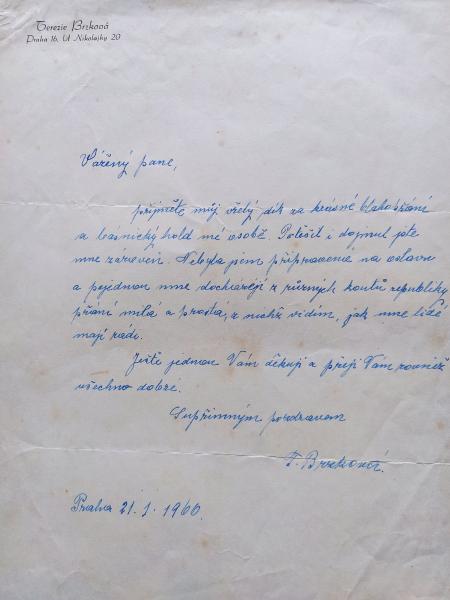 Terezie Brzková
Praha 16, U Nikolajky 20
Vážený pane,
přijměte můj vřelý dík za krásné blahopřání
a básnický hold mé osobě. Potěšil i dojmul jste
mne zároveň. Nebyla jsem připravena na oslavu
a pojednou mne docházejí z různých koutů republiky
přání milá a prostá, z nichž vidím, jak mne lidé
mají rádi.
Ještě jednou Vám děkuji a přeji Vám rovněž
všechno dobré.
S upřímným pozdravem
T. Brzková.
Praha 21. 1. 1966.